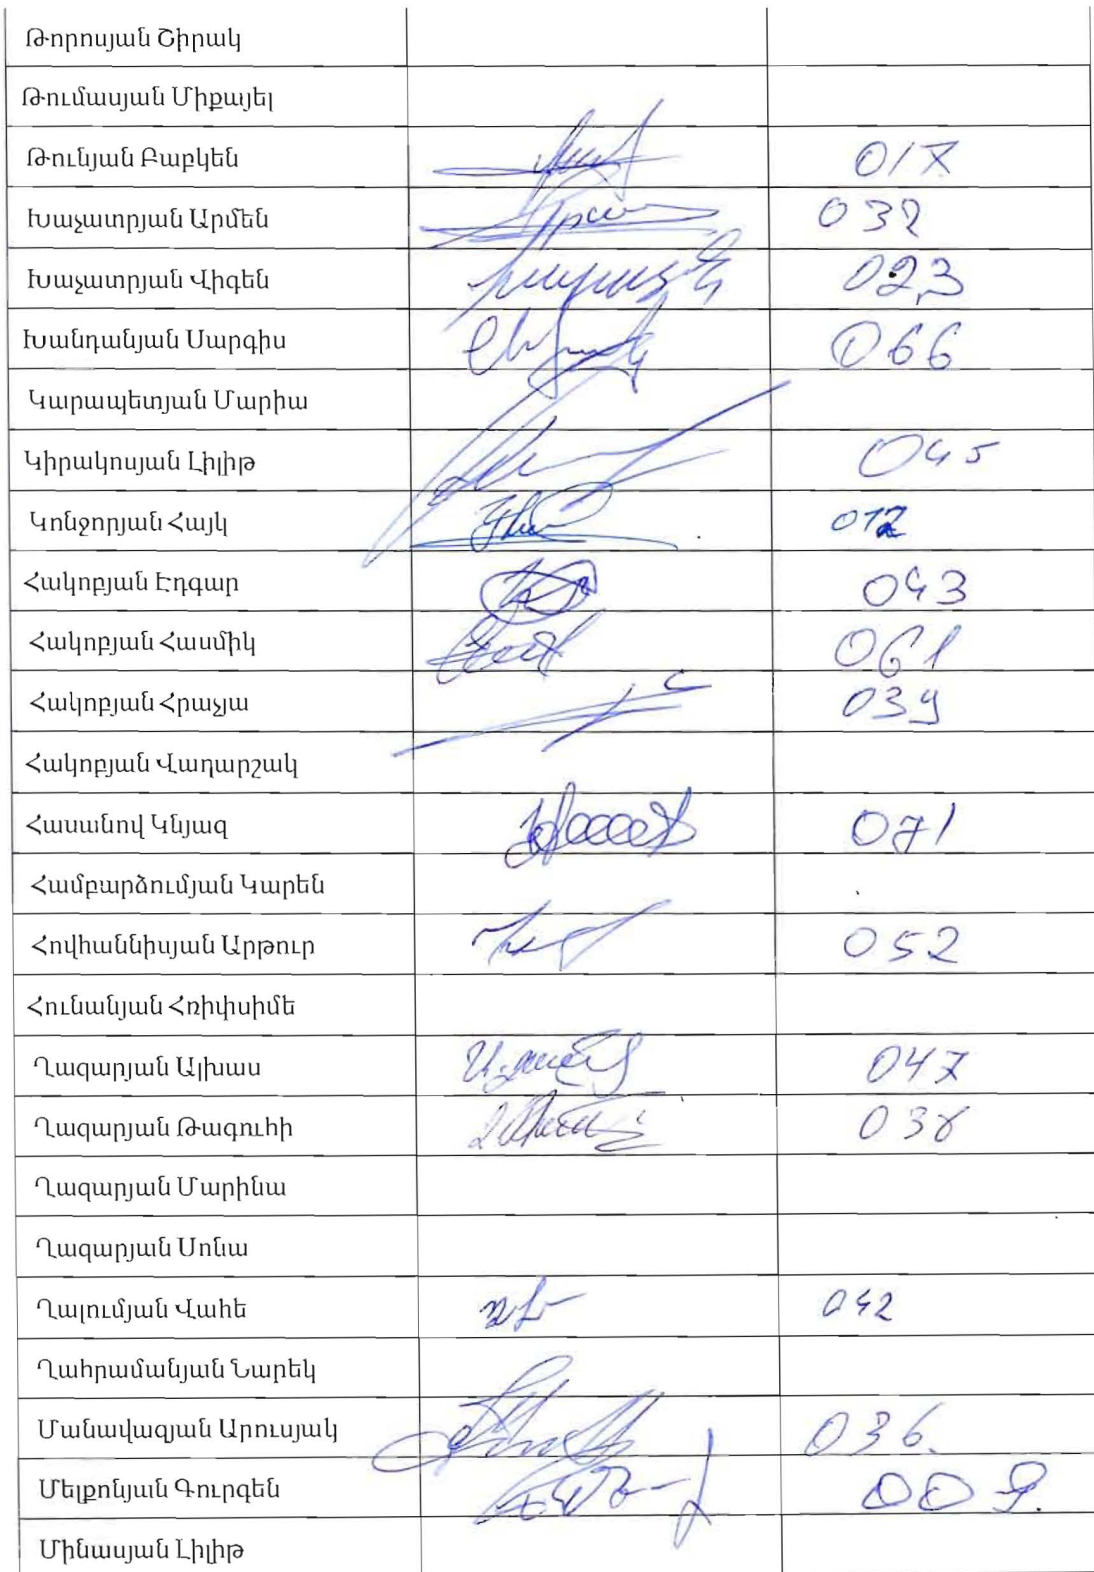 Թորոսյան Շիրակ
Թումասյան Միքայել
Թունյան Բաբկեն 017
Խաչատրյան Արմեն 032
Խաչատրյան Վիգեն 023
Խանդանյան Սարգիս 066
Կարապետյան Մարիա
Կիրակոսյան Լիլիթ 045
Կոնջորյան Հայկ 012
Հակոբյան Էդգար 043
Հակոբյան Հասմիկ 061
Հակոբյան Հրաչյա 039
Հակոբյան Վաղարշակ
Հասանով Կնյազ 071
Համբարձումյան Կարեն
Հովհաննիսյան Արթուր 052
Հունանյան Հռիփսիմե
Ղազարյան Ալխաս 047
Ղազարյան Թագուհի 038
Ղազարյան Մարինա
Ղազարյան Սոնա
Ղալումյան Վահե 042
Ղահրամանյան Նարեկ
Մանավազյան Արուսյակ 036.
Մելքոնյան Գուրգեն 009.
Մինասյան Լիլիթ